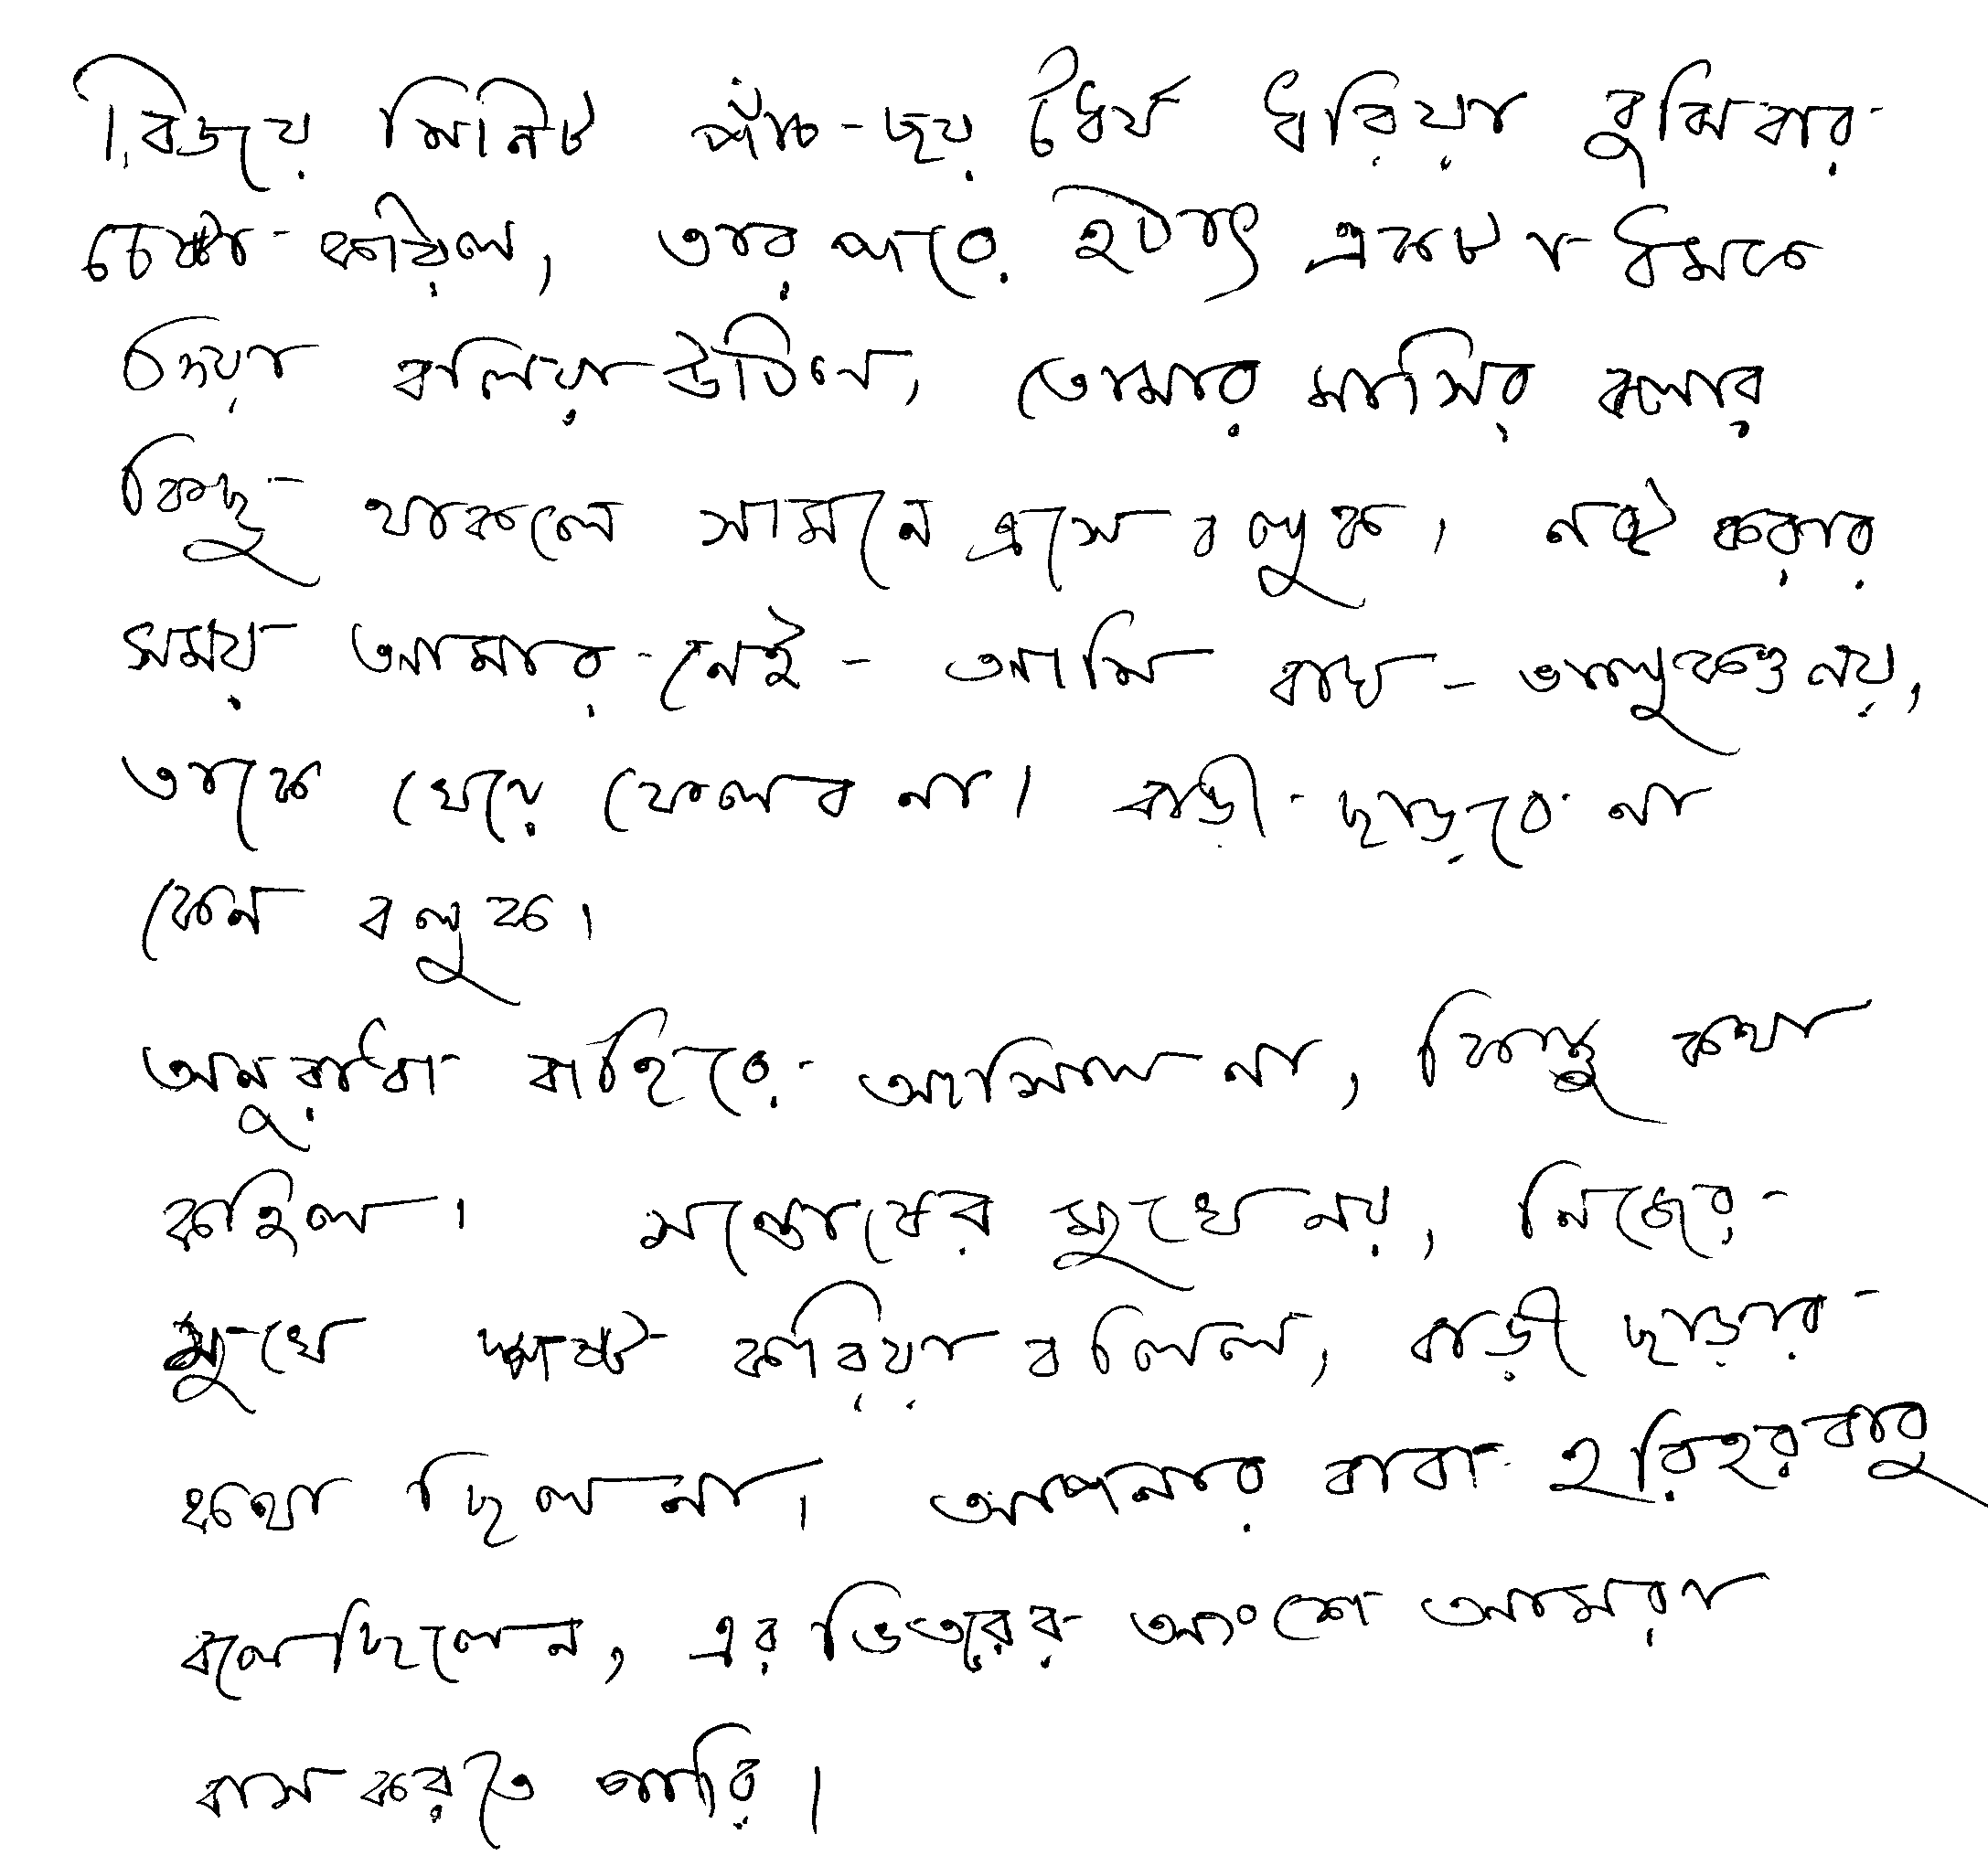 বিজয় মিনিট পাঁচ-ছয় ধৈর্য ধরিয়া বুঝিবার
চেষ্টা করিল, তার পরে হঠাৎ একটা ধমক
দিয়া বলিয়া উঠিল, তোমার মাসির বলার
কিছু থাকলে সামনে এসে বলুক। নষ্ট করার
সময় আমার নেই - আমি বাঘ - ভালুকও নয়,
তাকে খেয়ে ফেলব না। বাড়ী ছাড়বে না
কেন বলুক।
অনুরাধা বাহিরে আসিল না, কিন্তু কথা
কহিল। সন্তোষের মুখে নয়, নিজের
মুখে স্পষ্ট করিয়া বলিল, বাড়ী ছাড়ার
কথা ছিল না। আপনার বাবা হরিহরবাবু
বলেছিলেন, এর ভিতরের অংশে আমরা
বাস করতে পারি।